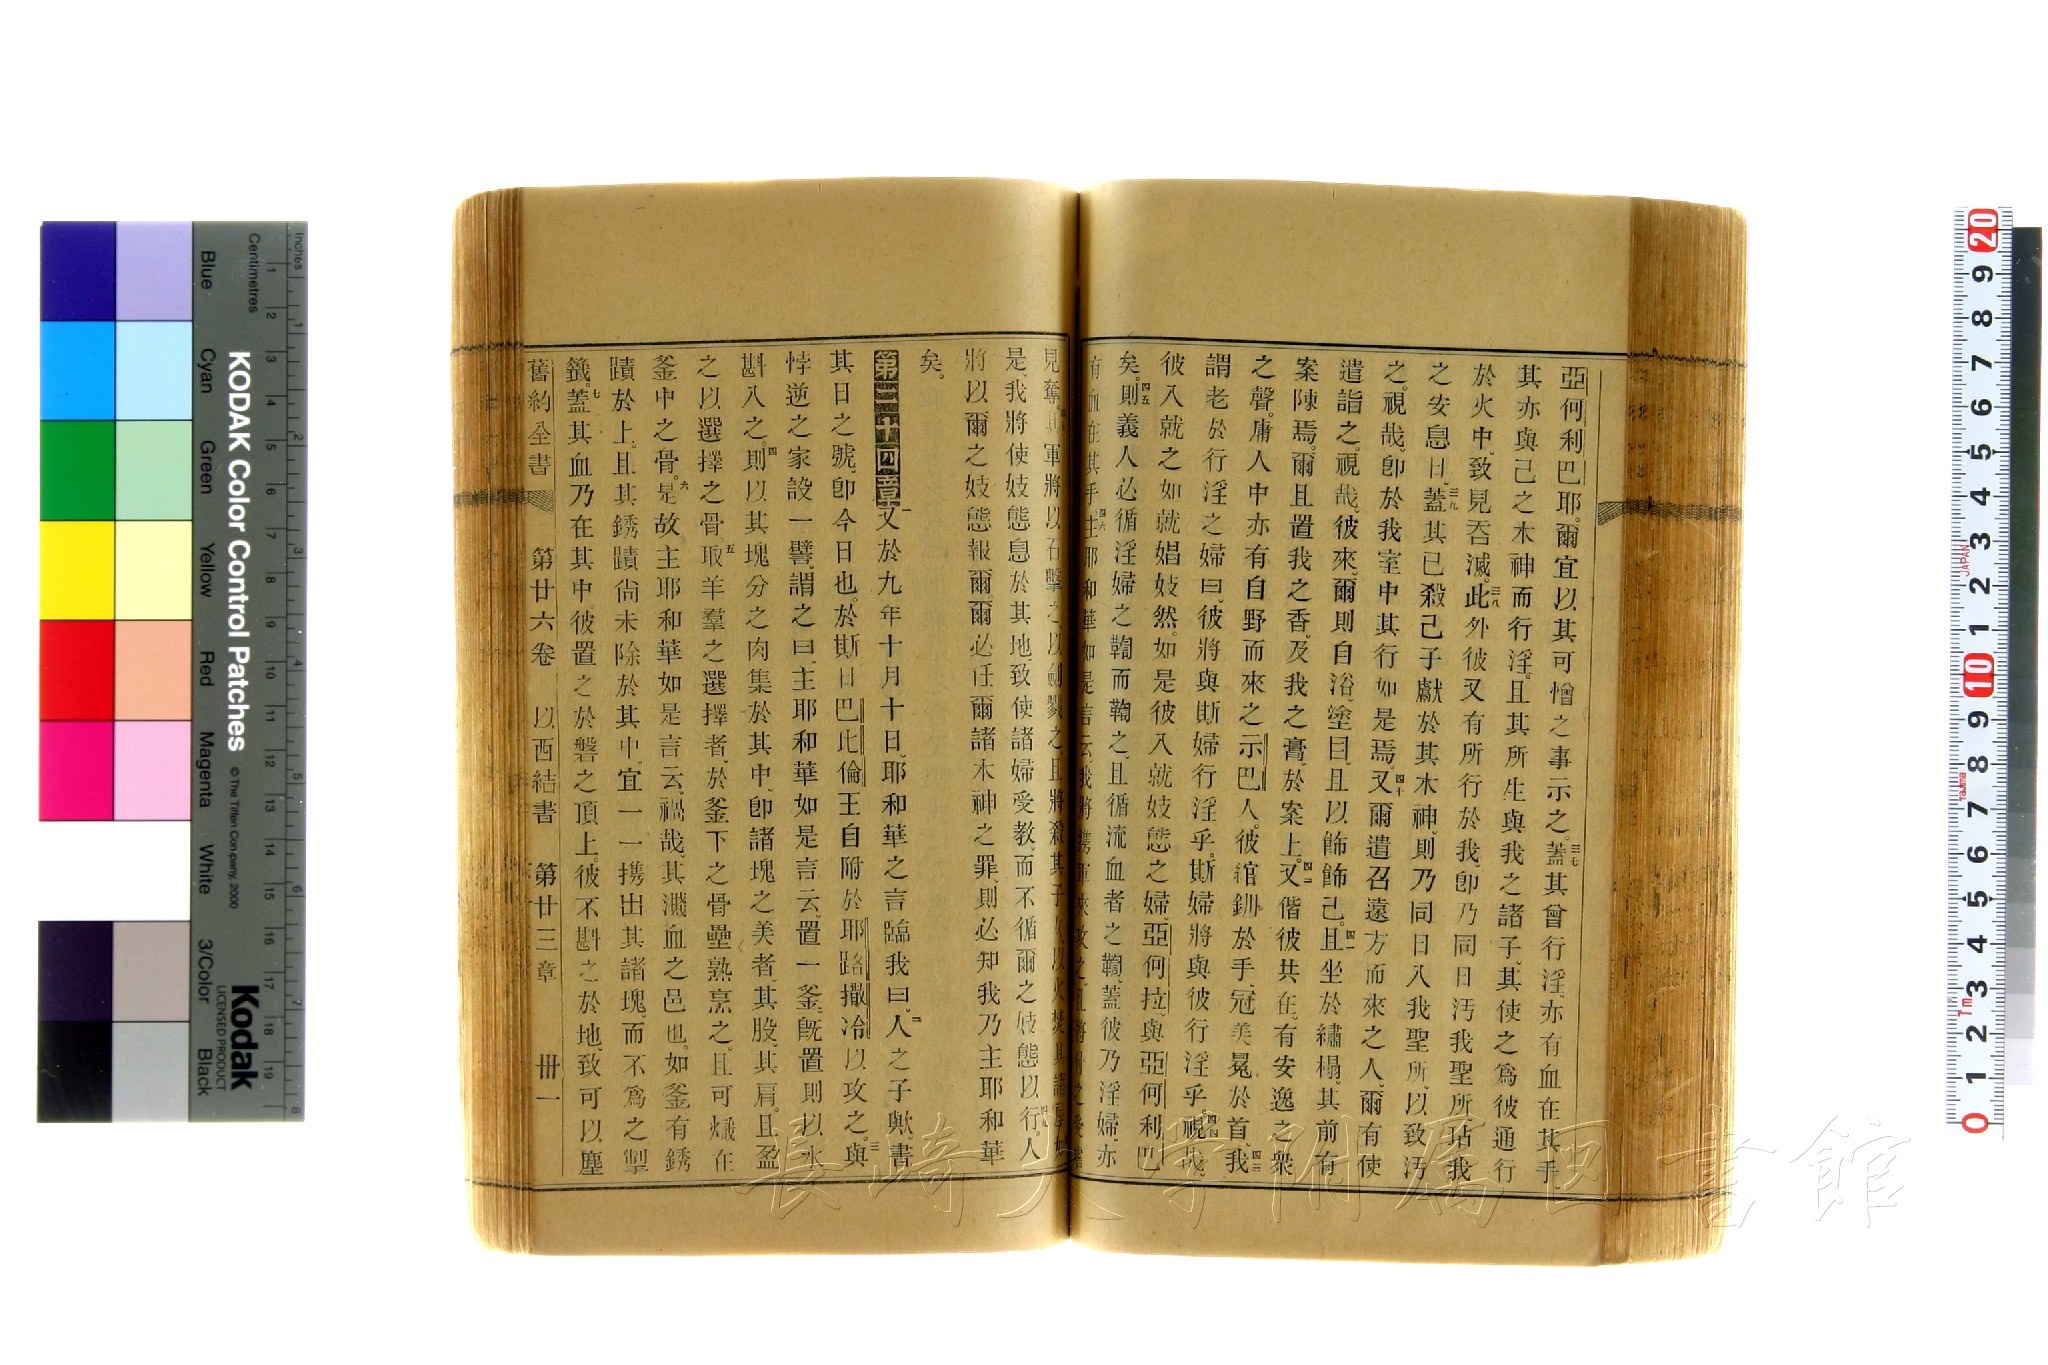 亞何利巴耶。爾宜以其可憎之事示之。三七蓋其曾行淫、亦有血在其手、
其亦與己之木神而行淫。且其所生與我之諸子、其使之爲彼通行
於火中、致見吞滅。三八此外彼又有所行於我、卽乃同日汚我聖所、玷我
之安息日。三九蓋其已殺己子獻於其木神、則乃同日入我聖所、以致汚
之。視哉、卽於我室中其行如是焉。四十又爾遣召遠方而來之人、爾有使
遣詣之。視哉、彼來、爾則自浴、塗目、且以飾飾己。四一且坐於繡榻、其前有
案陳焉。爾且置我之香、及我之膏、於案上。四二又偕彼共在、有安逸之衆
之聲。庸人中亦有自野而來之示巴人。彼綰釧於手、冠美冕於首。四三我
謂老於行淫之婦曰、彼將與斯婦行淫乎。斯婦將與彼行淫乎。四四視哉、
彼入就之如就娼妓然。如是彼入就妓態之婦、亞何拉、與亞何利巴
矣。四五則義人必循淫婦之鞫而鞫之、且循流血者之鞫、蓋彼乃淫婦、亦
有血在其手。四六主耶和華如是言云、我將攜軍來攻之、且將付之受虐
見奪。軍將以石擊之、以劍戮之、且將殺其子女、以火焚其諸屋。如
是、我將使妓態息於其地、致使諸婦受教、而不循爾之妓態以行。人
將以爾之妓態報爾、爾必任爾諸木神之罪、則必知我乃主耶和華
矣。
第二十四章 一又於九年十月十日、耶和華之言臨我曰、二人之子歟、書
其日之號、卽今日也。於斯日巴比倫王自附於耶路撒冷以攻之。三與
悖逆之家設一譬、謂之曰、主耶和華如是言云、置一釜、旣置則以水
斟入之。四則以其塊分之肉集於其中、卽諸塊之美者、其股、其肩。且盈
之以選擇之骨。五取羊羣之選擇者、於釜下之骨壘熟烹之。且可熾在
釜中之骨。六是故主耶和華如是言云、禍哉、其濺血之邑也。如釜有銹
蹟於上。且其銹蹟尙未除於其中、宜一一攜出其諸塊。而不爲之掣
籤。七蓋其血乃在其中、彼置之於磐之頂上。彼不斟之於地、致可以塵
舊約全書 第廿六卷 以西結書 第廿三章 卅一
Inches
Centimetres
KODAK Color Control Patches
© The Tiffen Company, 2000
Kodak
LICENSED PRODUCT
Blue
Cyan
Green
Yellow
Red
Magenta
White
3/Color
Black
JAPAN
長崎大学附属図書館